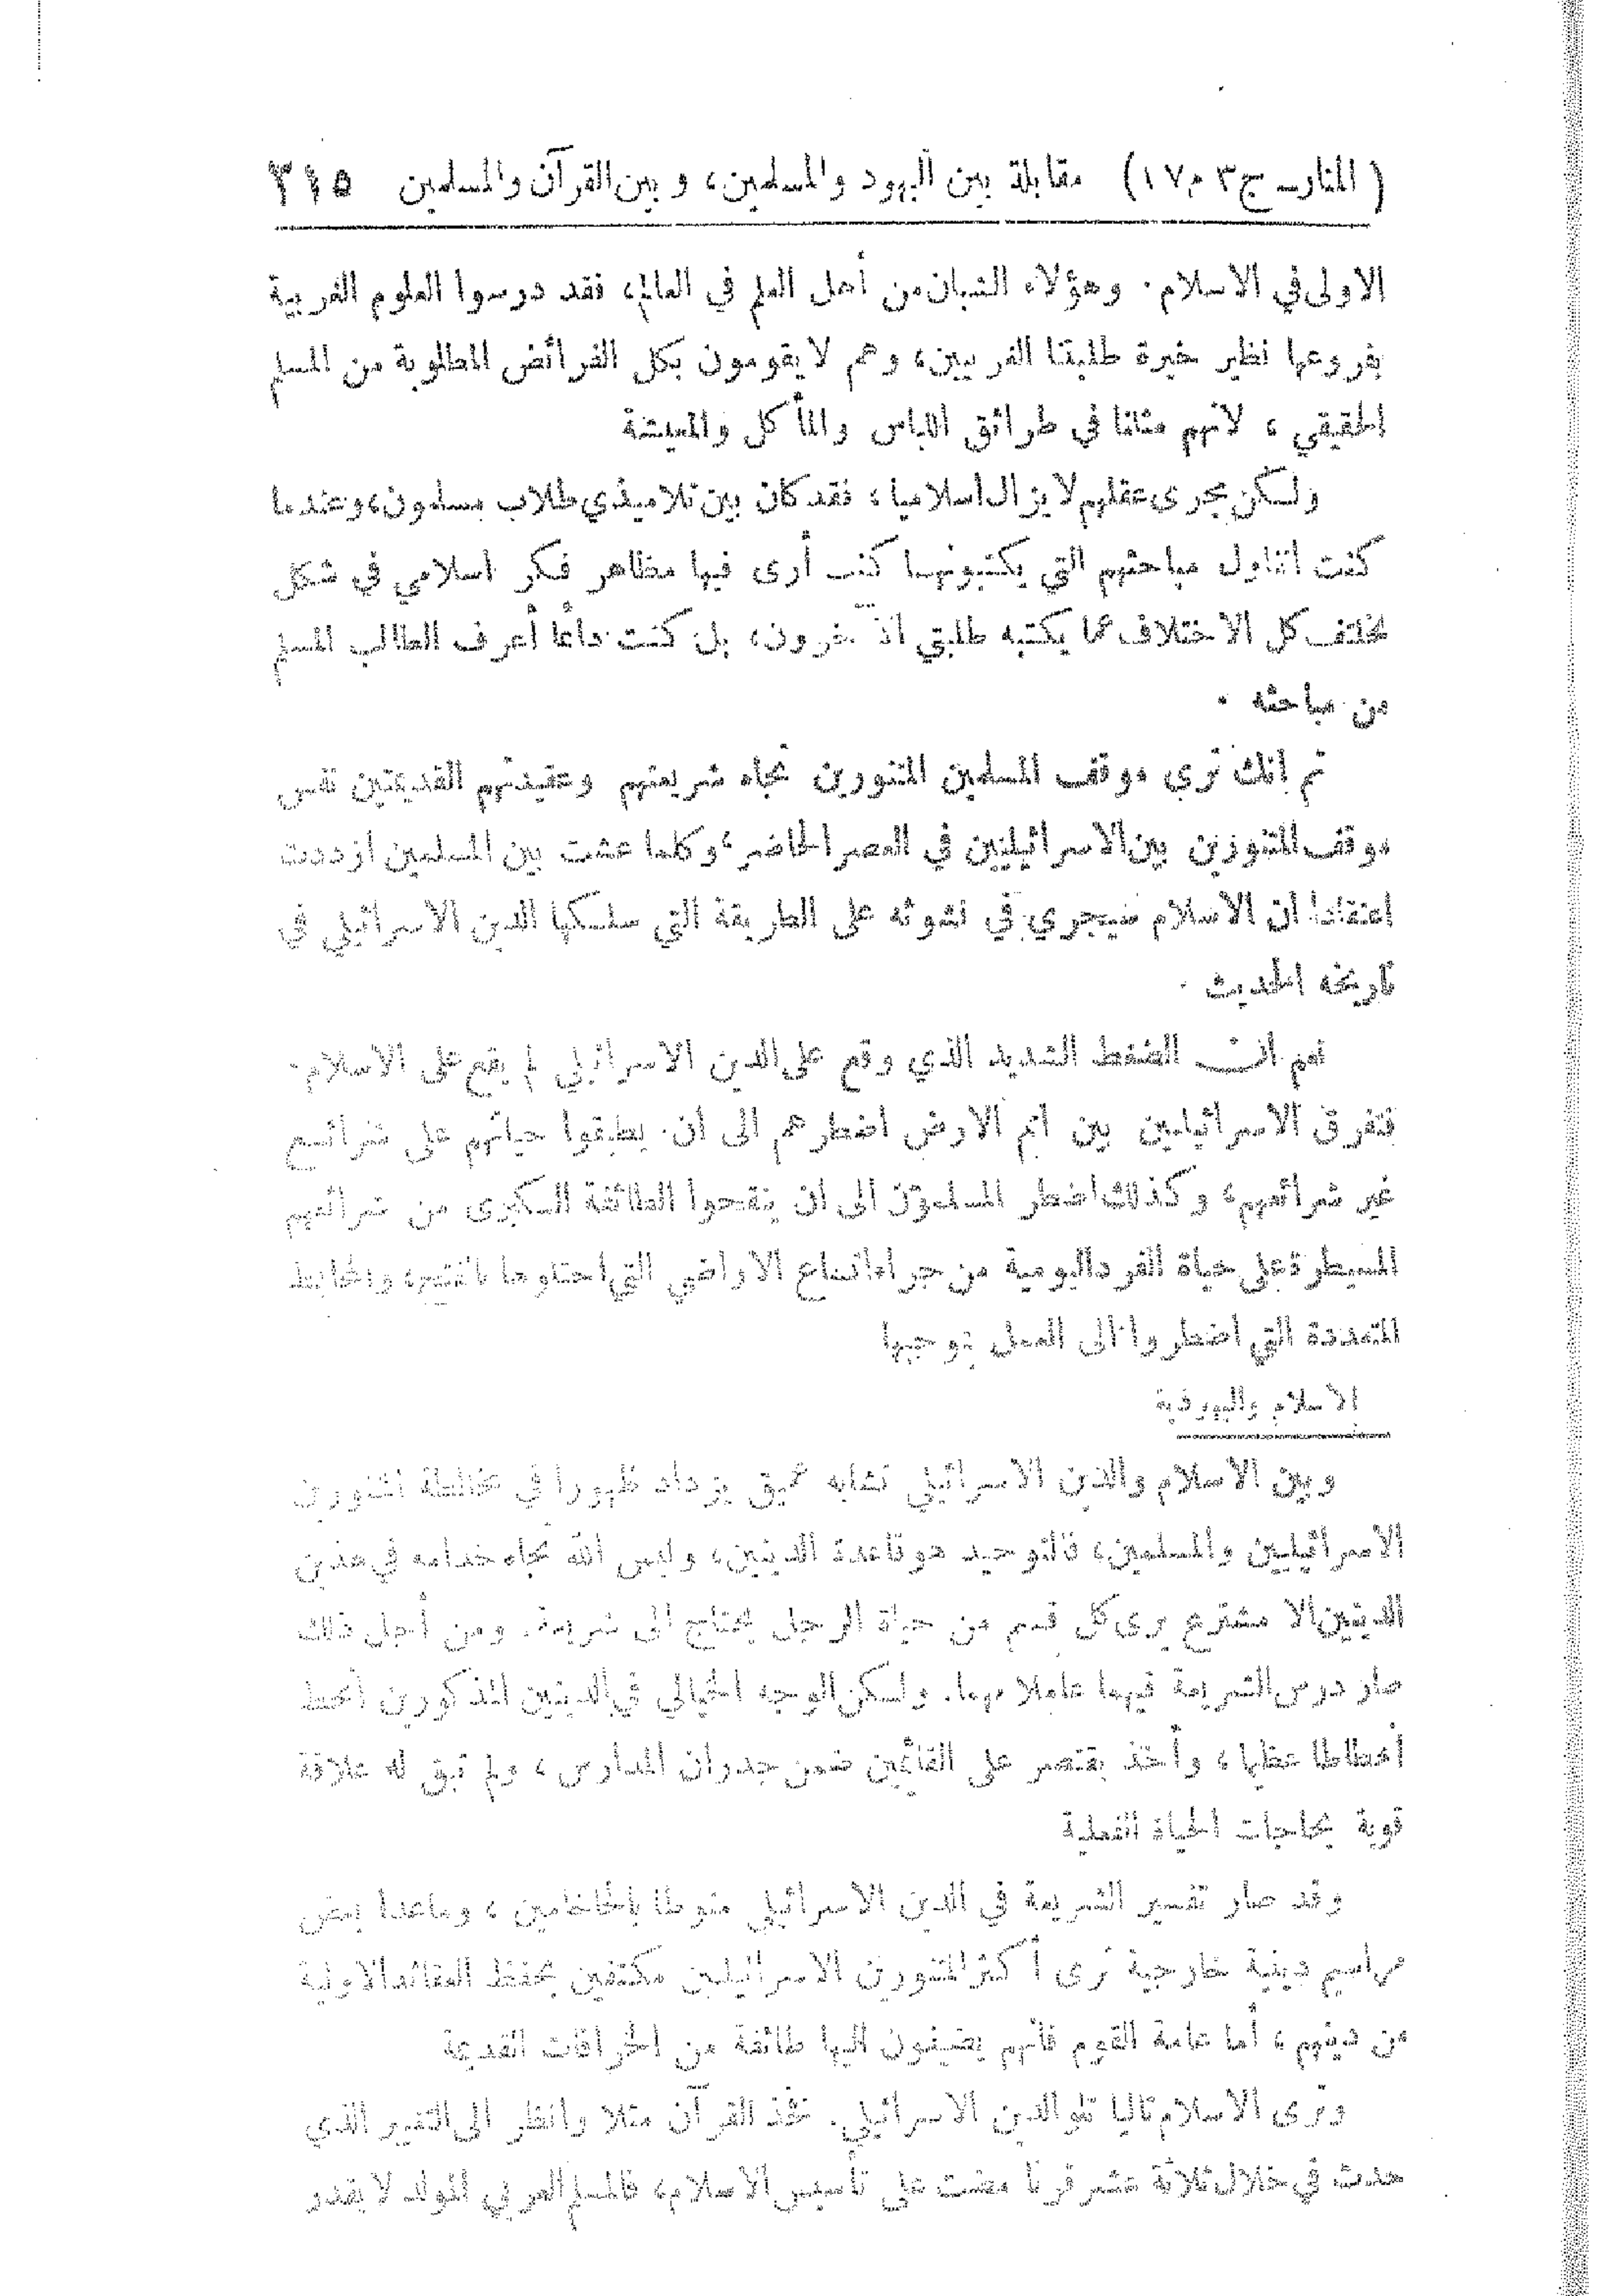 ( المنار ـ ج ٣ م ١٧ ) مقابلة بين اليهود والمسلمين، وبين القرآن والمسلمين ٢١٥
الاولى في الاسلام. وهؤلاء الشبان من أهل العلم في العالم، فقد درسوا العلوم الغربية
بفروعها نظير خيرة طلبتنا الغربيين، وهم لا يقومون بكل الفرائض المطلوبة من المسلم
الحقيقي، لانهم مثلنا في طرائق اللباس والمأكل والمعيشة
ولكن مجرى عقلهم لا يزال اسلاميا، فقد كان بين تلاميذي طلاب مسلمون، وعندما
كنت اتناول مباحثهم التي يكتبونها كنت أرى فيها مظاهر فكر اسلامي في شكل
مختلف كل الاختلاف عما يكتبه طلبتي الآخرون، بل كنت دائما أعرف الطالب المسلم
من مباحثه .
ثم انك ترى موقف المسلمين المتنورين تجاه شريعتهم وعقيدتهم القديمتين نفس
موقف المتنورين بين الاسرائيليين في العصر الحاضر، وكلما عشت بين المسلمين ازددت
اعتقادا ان الاسلام سيجري في نشوئه على الطريقة التي سلكها الدين الاسرائيلي في
تاريخه الحديث .
نعم ان الضغط الشديد الذي وقع على الدين الاسرائيلي لم يقع على الاسلام.
فتفرق الاسرائيليين بين امم الارض اضطرهم الى ان يطبقوا حياتهم على شرائع
غير شرائعهم، وكذلك اضطر المسلمون الى ان ينقحوا الطائفة الكبرى من شرائعهم
المسيطرة على حياة الفرد اليومية من جراء اتساع الاراضي التي احتلوها بالفتح،
المتعددة التي اضطروا الى العمل بموجبها
الاسلام واليهودية
وبين الاسلام والدين الاسرائيلي تشابه عميق يزداد ظهورا في مخالطة المتنورين
الاسرائيليين والمسلمين، فالتوحيد هو قاعدة الدينين، وليس الله تجاه خدامه في هذين
الدينين الا مشترع يرى كل قسم من حياة الرجل يحتاج الى شريعة. ومن أجل ذلك
صار درس الشريعة فيهما عاملا مهما. ولكن الوجه الخيالي في الدينين المذكورين انحط
انحطاطا عظيما، وأخذ يقتصر على القائمين ضمن جدران المدارس، ولم تبق له علاقة
قوية بحاجات الحياة الفعلية
وقد صار تفسير الشريعة في الدين الاسرائيلي منوطا بالحاخامين، وماعدا بعض
مراسيم دينية خارجية ترى أكثر المتنورين الاسرائيليين مكتفين بحفظ العقائد الاولية
من دينهم، أما عامة القوم فانهم يضيفون اليها طائفة من الخرافات القديمة
وترى الاسلام تاليا تلو الدين الاسرائيلي. فخذ القرآن مثلا وانظر الى التغيير الذي
حدث في خلال ثلاثة عشر قرنا مضت على تأسيس الاسلام، فالمسلم العربي المولد لا يقدر